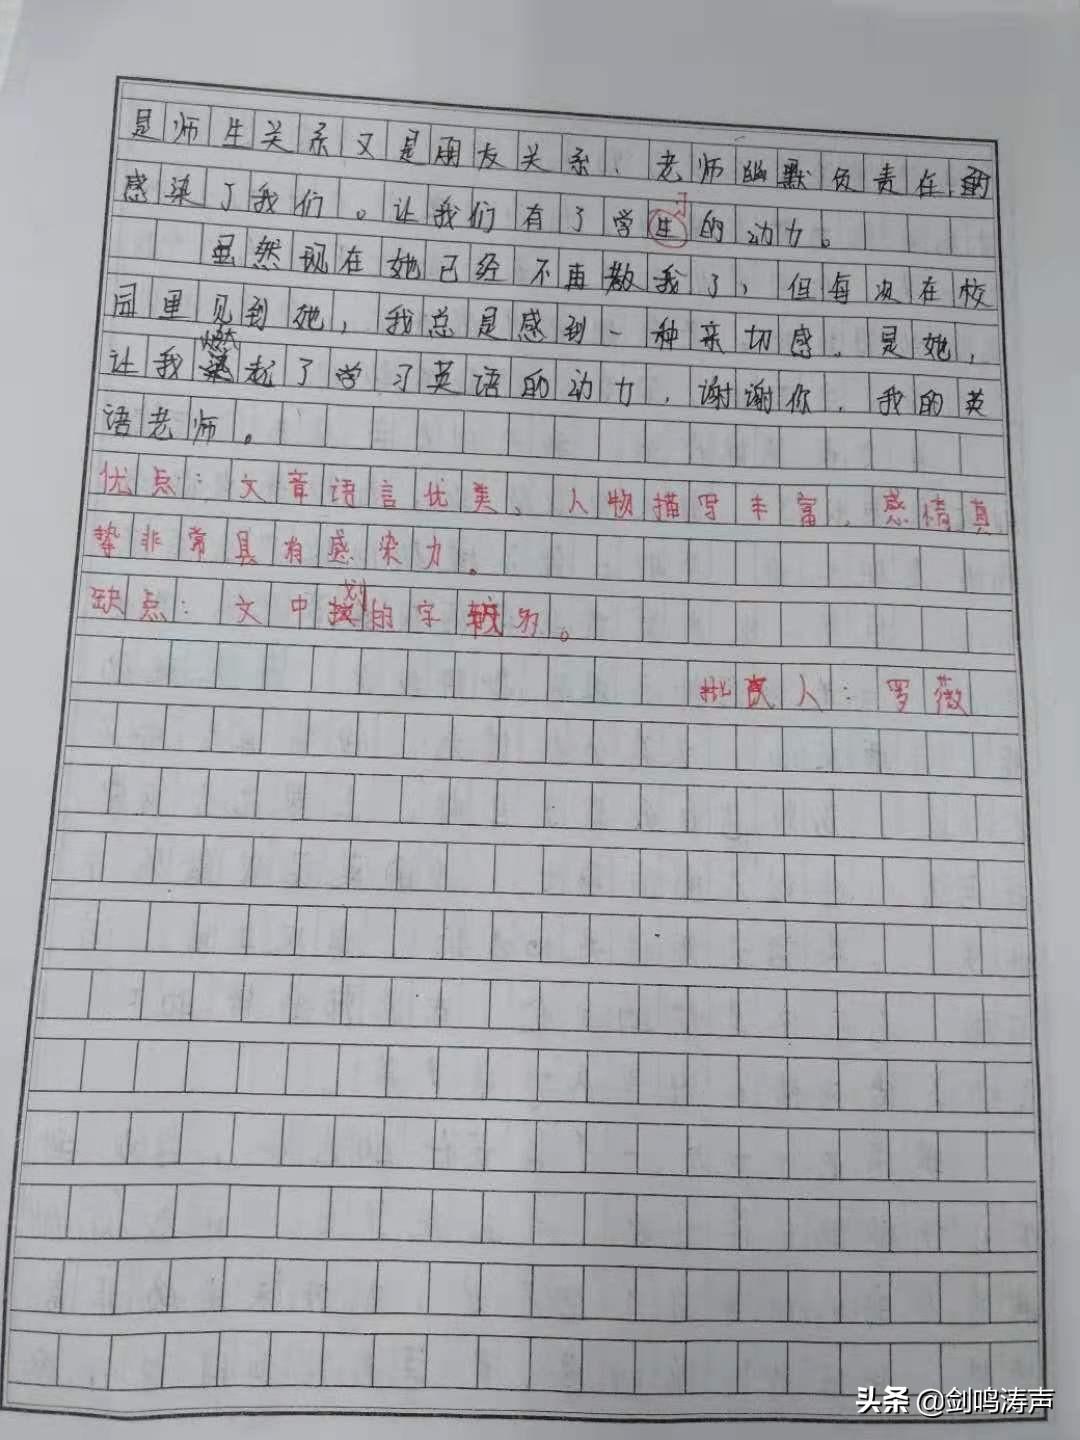 是师生关系又是朋友关系、老师幽默负责任的
感染了我们。让我们有了学生的动力。
习
虽然现在她已经不再教我了，但每次在校
园里见到她，我总是感到一种亲切感．是她，
燃
让我起了学习英语的动力．谢谢你．我的英
语老师。
优点：文章语言优美、人物描写丰富．感情真
挚非常具有感染力。
划
缺点：文中的字较多。
批改人：罗薇
头条 @剑鸣涛声